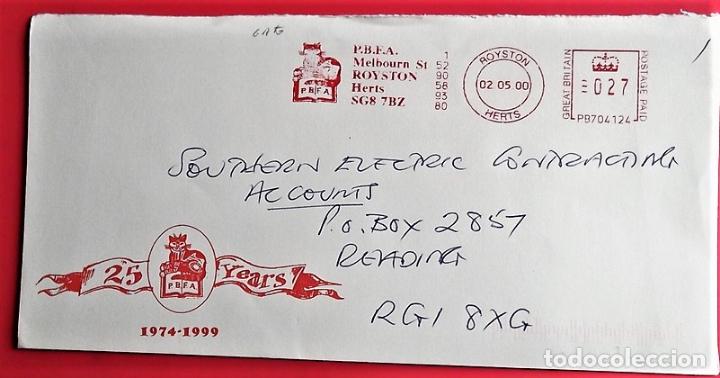 P.B.F.A.
Melbourn St
ROYSTON
Herts
SG8 7BZ
P.B.F.A
1
52
90
58
93
80
ROYSTON
02.05.00
HERTS
GREAT BRITAIN
027
POSTAGE PAID
PB704124
SOUTHERN ELECTRIC CONTRACTING
ACCOUNTS
P.O. BOX 2857
READING
RG1 8XG
25 Years!
P.B.F.A
1974-1999
todocoleccion